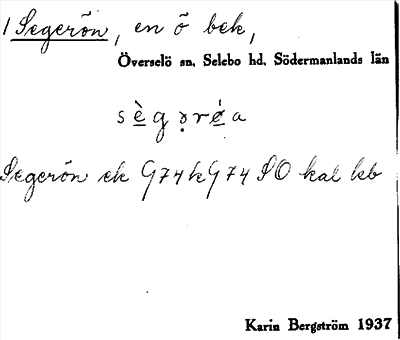 1 Segerön, en ö bek,
Överselö sn, Selebo hd, Södermanlands län
Segerön ek G74k G74 SO kal kb
Karin Bergström 1937